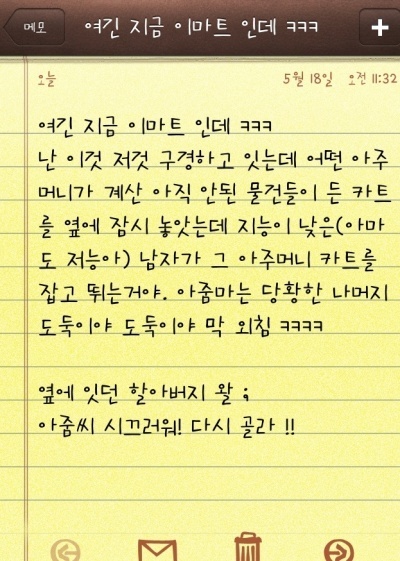 메모
여긴 지금 이마트 인데 ㅋㅋㅋ
오늘
5월 18일 오전 11:32
여긴 지금 이마트 인데 ㅋㅋㅋ
난 이것 저것 구경하고 잇는데 어떤 아주
머니가 계산 아직 안된 물건들이 든 카트
를 옆에 잠시 놓앗는데 지능이 낮은(아마
도 저능아) 남자가 그 아주머니 카트를
잡고 뛰는거야. 아줌마는 당황한 나머지
도둑이야 도둑이야 막 외침 ㅋㅋㅋㅋ
옆에 잇던 할아버지 왈 ;
아줌씨 시끄러워! 다시 골라 !!